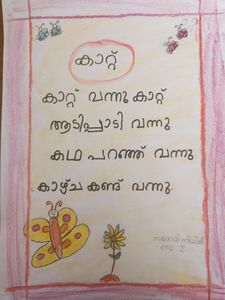 കാറ്റ്
കാറ്റ് വന്നു കാറ്റ്
ആടിപ്പാടി വന്നു
കഥ പറഞ്ഞ് വന്നു
കാഴ്ച കണ്ട് വന്നു.